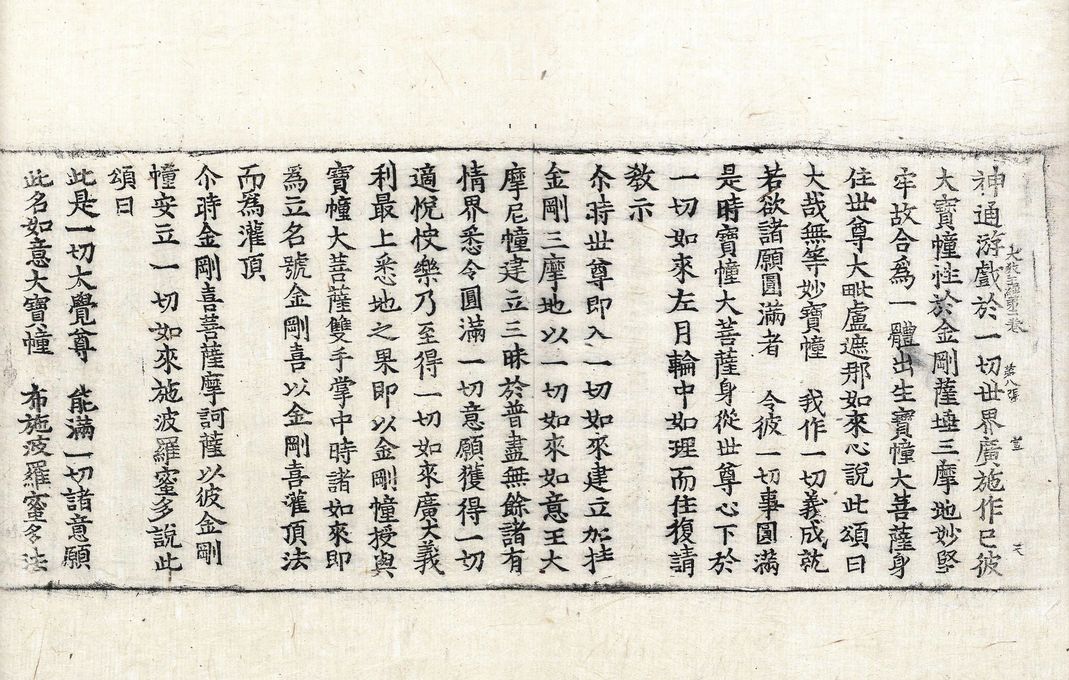 神通游戲於一切世界廣施作已彼
大寶幢性於金剛薩埵三摩地妙堅
牢故合爲一體出生寶幢大菩薩身
住世尊大毗盧遮那如來心說此頌曰
大哉無等妙寶幢 我作一切義成就
若欲諸願圓滿者 令彼一切事圓滿
是時寶幢大菩薩身從世尊心下於
一切如來左月輪中如理而住復請
教示
尒時世尊即入一切如來建立加持
金剛三摩地以一切如來如意王大
摩尼幢建立三昧於普盡無餘諸有
情界悉令圓滿一切意願獲得一切
適悅快樂乃至得一切如來廣大義
利最上悉地之果即以金剛幢授與
寶幢大菩薩雙手掌中時諸如來即
爲立名號金剛喜以金剛喜灌頂法
而爲灌頂
尒時金剛喜菩薩摩訶薩以彼金剛
幢安立一切如來施波羅蜜多說此
頌曰
此是一切大覺尊 能滿一切諸意願
此名如意大寶幢 布施波羅蜜多法
第八張